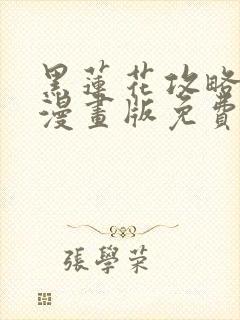 黑蓮花攻略
漫畫版免費
張學荣